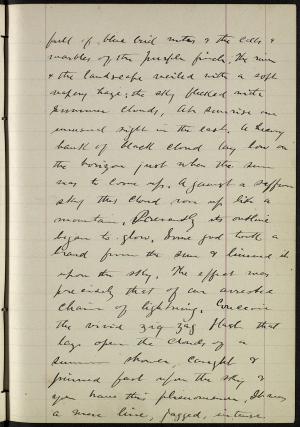 full of blue bird notes & the calls &
warbles of the purple finch, the river
& the landscape veiled with a soft
vapory haze; the sky flecked with
summer clouds, At sunrise an
unusual sight in the east. A heavy
bank of black cloud lay low on
the horizon just when the sun
was to come up. Against a saffron
sky this cloud rose up like a
mountain. Presently its outline
began to glow. Some god took a
brand from the sun & limned it
upon the sky. The effect was
precisely that of an arrested
chain of lightning. Conceive
the vivid zig zag flash that
lays open the clouds of a
summer shower, caught &
pinned fast upon the sky &
you have this phenomenon. It was
a mere line, jagged, intense